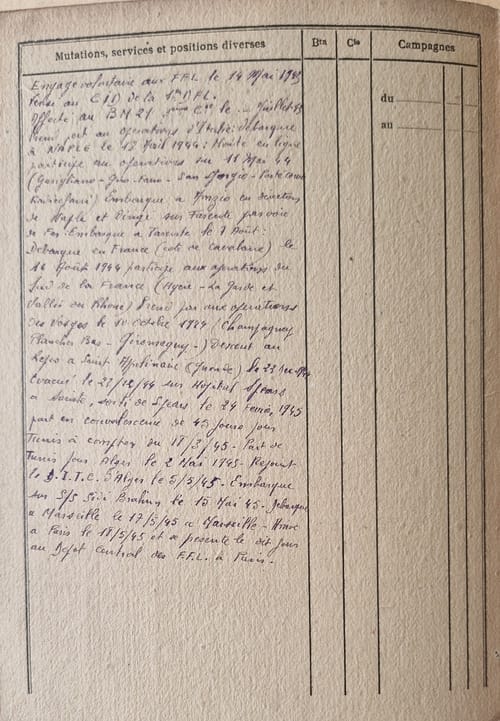 Mutations, services et positions diverses
Bts
Cie
Campagnes
du
au
Engagé volontaire aux F.F.L. le 14 Mai 1943
au C I D de la 1ère D F L.
Affecté au B M 21 Cie le Juillet 43
Prend part au operations d'Italie: debarque
a NAPLE le 18 Avril 1944: Monte en ligne
participe au operations du 11 Mai 44
(Garigliano - San Giorgio -
Embarque a en direction
de Naple et dirigé sur Tarente par voie
de Fer. Embarque a Tarente le 7 Août:
Debarque en France (cote de Cavalaire) le
16 Août 1944 participe aux operations du
Sud de la France (Hyere - La Garde et
Vallée du Rhone) Prend par aux operations
des Vosges le 10 Octobre 1944 (Champagney
Plancher Bas - Giromagny -) Descent au
Repos a Saint le 22
Evacué le 22/12/44 sur Hopital Spears
a Saint sorti de Spears le 24 Fevrier 1945
part en convalescence de 45 jours pour
Tunis à compter du 18/3/45 - Part de
Tunis pour Alger le 2 Mai 1945 - Rejoint
le D.I.T.C. d'Alger le 5/5/45 - Embarque
sur S/S Sidi Brahim le 15 Mai 45 - Debarque
a Marseille le 17/5/45 a Marseille - Arrive
a Paris le 18/5/45 et se presente le dit jour
au Depot Central des F.F.L. à Paris.